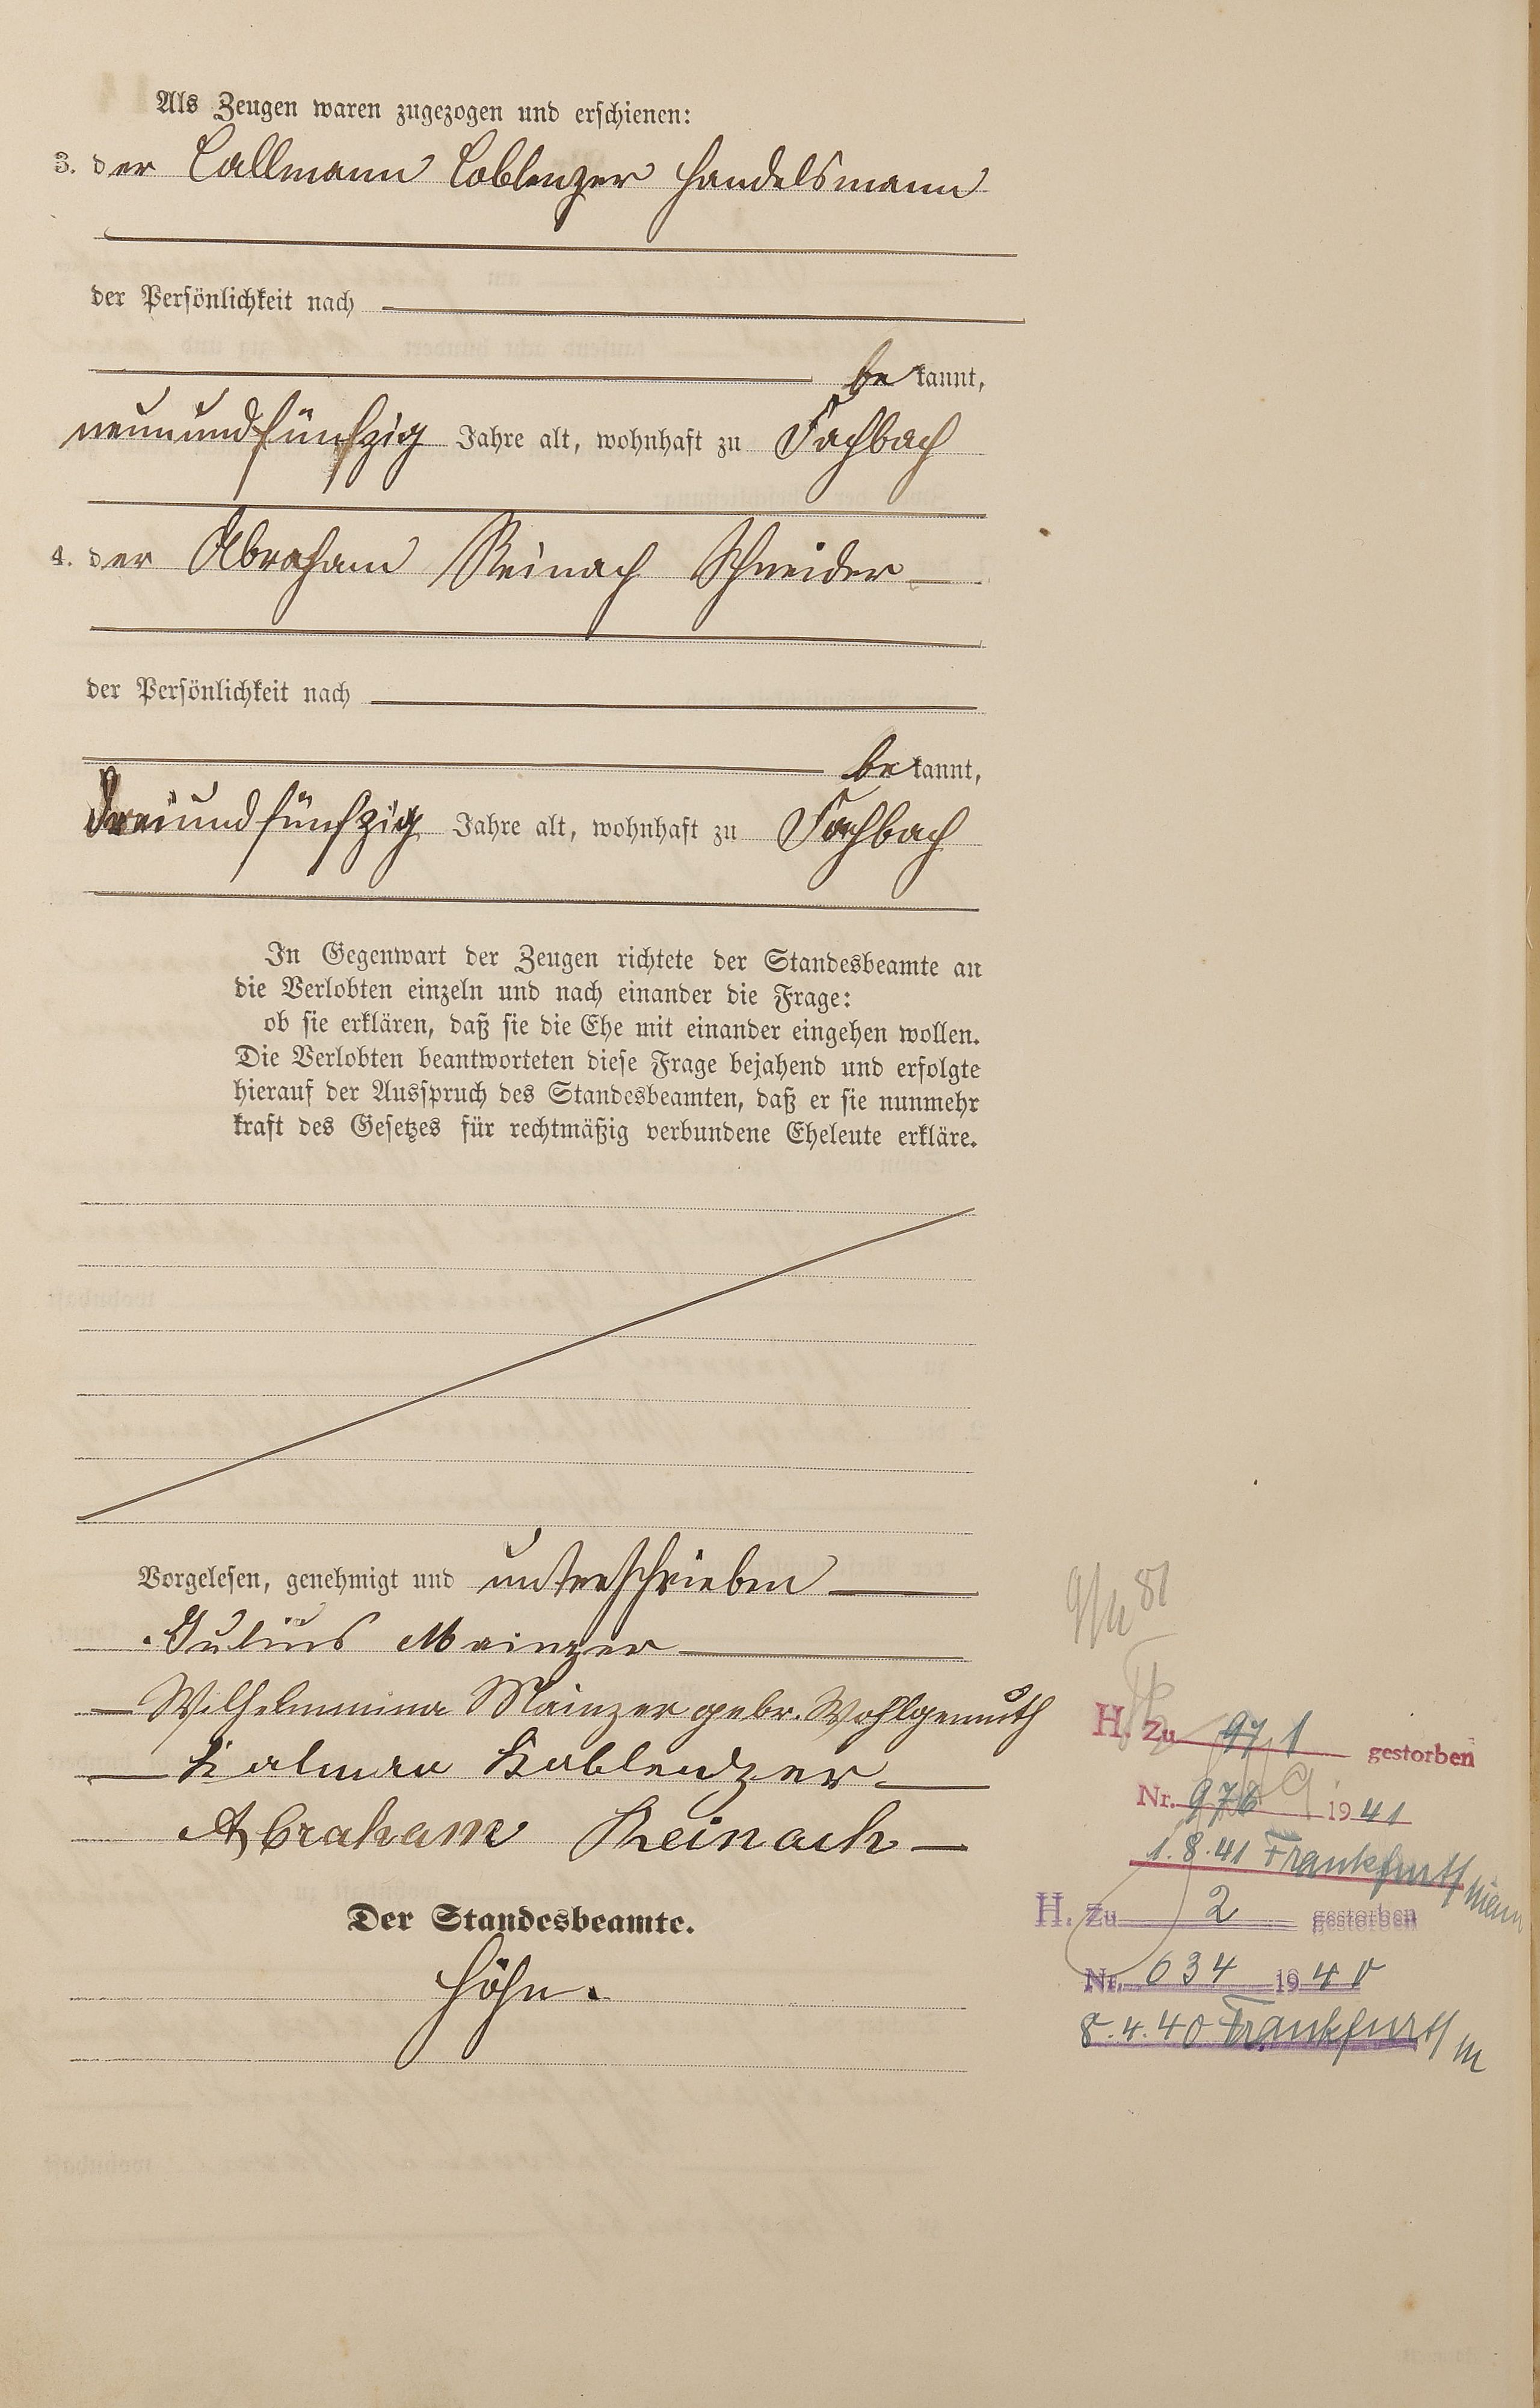 Als Zeugen waren zugezogen und erschienen:
3. der Callmann Coblenzer Handelsmann
der Persönlichkeit nach
be kannt,
neunundfünfzig Jahre alt, wohnhaft zu Fachbach
4. der Abraham Reinach Schneider
der Persönlichkeit nach
be kannt,
dreiundfünfzig Jahre alt, wohnhaft zu Fachbach
In Gegenwart der Zeugen richtete der Standesbeamte an
die Verlobten einzeln und nach einander die Frage:
ob sie erklären, daß sie die Ehe mit einander eingehen wollen.
Die Verlobten beantworteten diese Frage bejahend und erfolgte
hierauf der Ausspruch des Standesbeamten, daß er sie nunmehr
kraft des Gesetzes für rechtmäßig verbundene Eheleute erkläre.
Vorgelesen, genehmigt und unterschrieben
Julius Mainzer
Wilhelmmina Mainzer gebr. Wohlgemuth
Kalman Koblendzer
Abraham Reinach
Der Standesbeamte.
Höhn.
H. Zu 1 gestorben
Nr. 1941
1.8.41 Frankfurt/
H. Zu 2 gestorben
Nr. 634 1940
8.4.40 Frankfurt/M